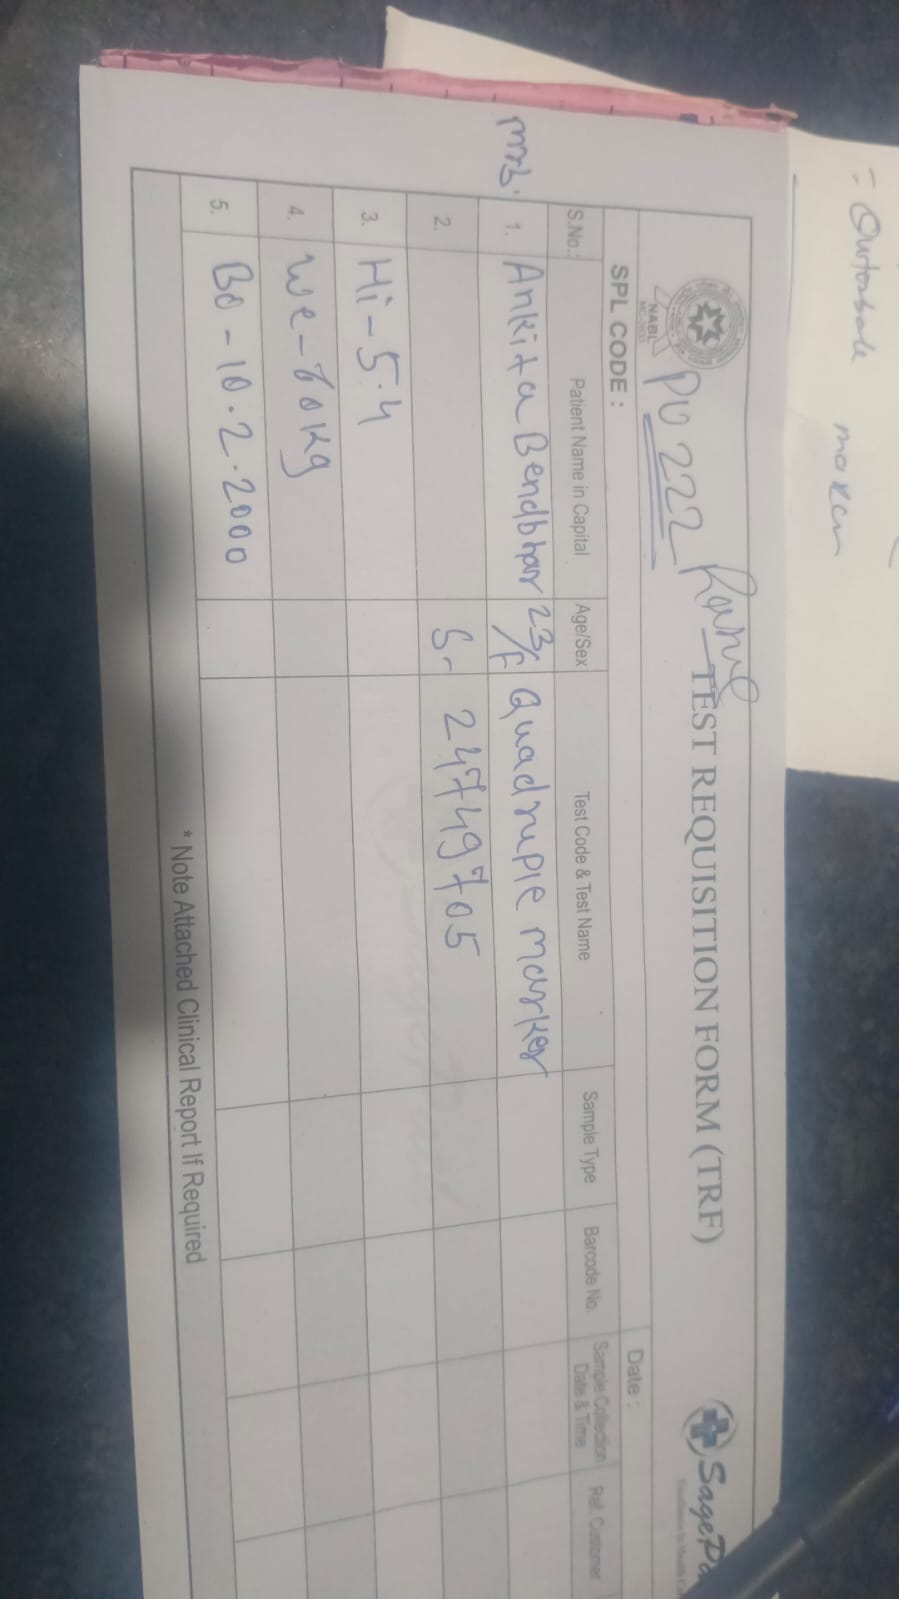 - Quatraple
marker
PU 222
TEST REQUISITION FORM (TRF)
SagePa
NABL
SPL CODE :
Date :
S.No.: Patient Name in Capital Age/Sex Test Code & Test Name Sample Type Barcode No. Sample Collection Date & Time Ref. Customer
Mrs. 1. Ankita Bendbhar 23/F Quadruple marker
2. S- 24749705
3. Hi - 5.4
4. We - 60Kg
5. BO - 10.2.2000
* Note Attached Clinical Report If Required